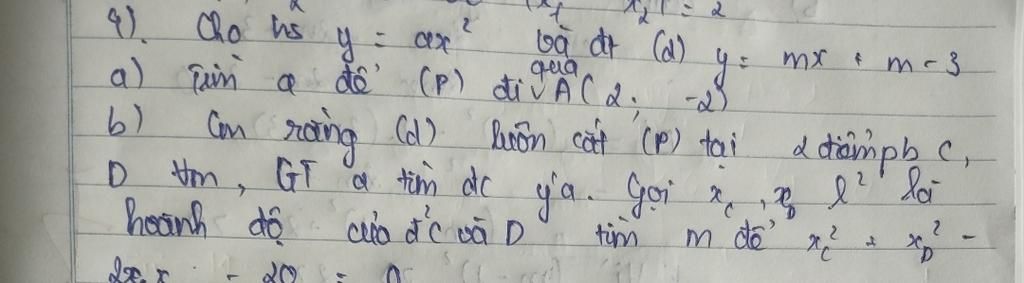 x₂| = 2
4). Cho hs y = ax² và đt (d) y = mx + m - 3
a) Tìm a để (P) đi qua A(2; -2)
b) Cm rằng (d) luôn cắt (P) tại 2 điểm pb C,
D vm, GT a tìm đc ý a. Gọi x_C, x_D l² là
hoành độ của đ' C và D tìm m để x_C² + x_D² -
2x x - 20 = 0